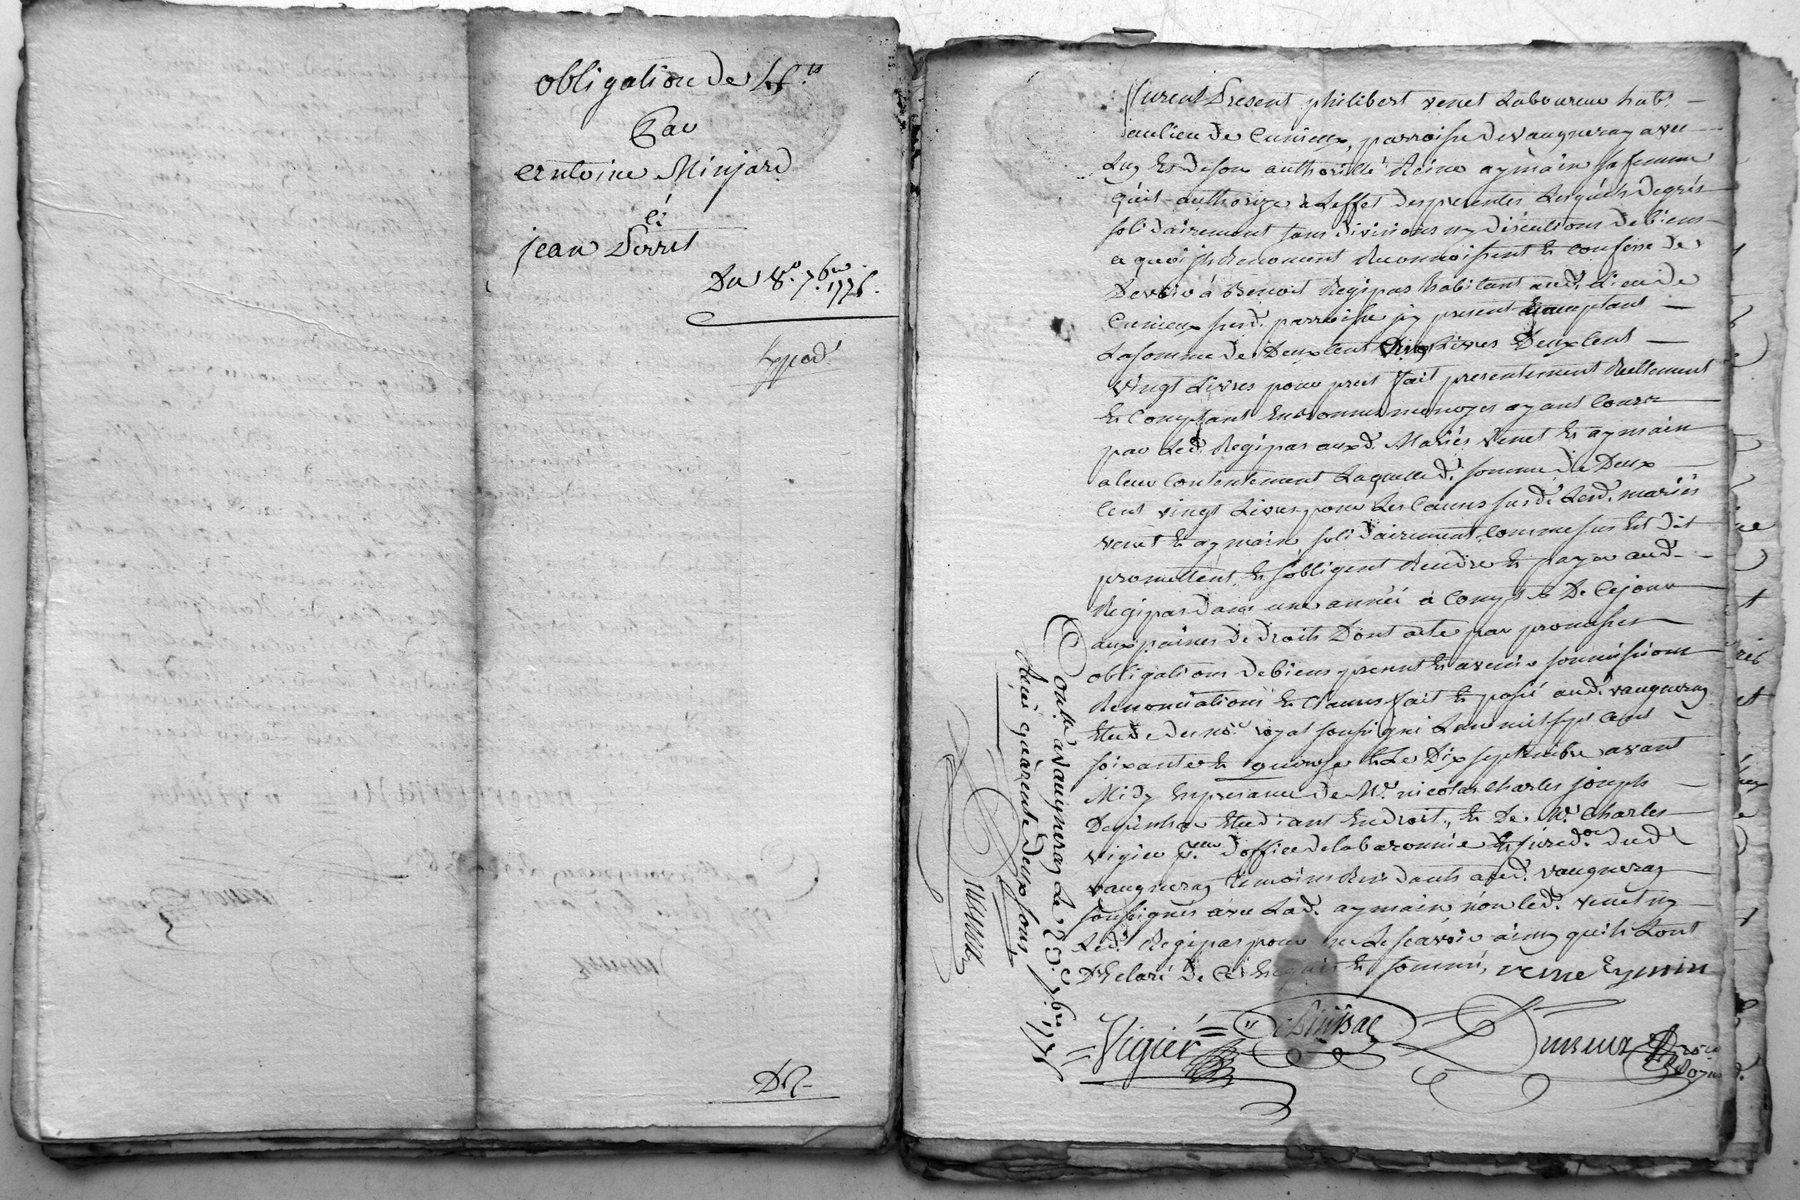 obligation de 44.#ts
Par
antoine Minjard
à
jean Perret
Du 8.e 7.bre 1775.
expéd.
Dz
Furent Present philibert venet Laboureur habt.
au lieu de Cunieux, parroisse de vaugneray avec
Luy Et de son authorité Reine aymain sa femme
qu'il authorize à L'effet des presentes Lesquels de grés
solidairement sans divisions ny discutions de biens
a quoi ils Renoncent Reconnoissent Et Confesse de
Devoir à Benoit Regipas habitant aud. Lieu de
Cunieux susd. parroisse icy present acceptant
La somme de Deux Cent vingt Livres Deux Cent
vingt Livres pour pret fait presentement Reellement
Et Comptant En bonnes monoyes ayant Cours
par Led. Regipas auxd. Mariés Venet Et aymain
a leur Contentement Laquelle d. somme de Deux
Cent vingt Livres pour Les Causes susd. Lesd. mariés
venet Et aymain solidairement Comme sus Est dit
promettent, Et s'obligent Rendre Et payer aud.
Regipas dans une année à Compter De Ce jour
aux peines de droits Dont acte par promesses
obligations de biens presents Et avenir soumissions
Renonciations Et Clauses fait Et passé aud. vaugneray
Etude du no.re royal soussigné L'an mil sept Cent
soixante Et quinze Et Le Dix septembre avant
Midy En presence de Mr. nicolas Charles joseph
Etudiant En droit, Et De Mr. Charles
Vigier d'office de la baronnie Et jured.on dud.
vaugneray temoins Residants aud. vaugneray
soussignés avec Lad. aymain non led. venet ny
Led. Regipas pour ne Le scavoir ainsy qu'ils L'ont
Declaré de Ce Enquis Et sommé, reine Eymin
Vigier
Contllé. a vaugneray Le 23. 7bre. 1775
Reçu quarente deux sous